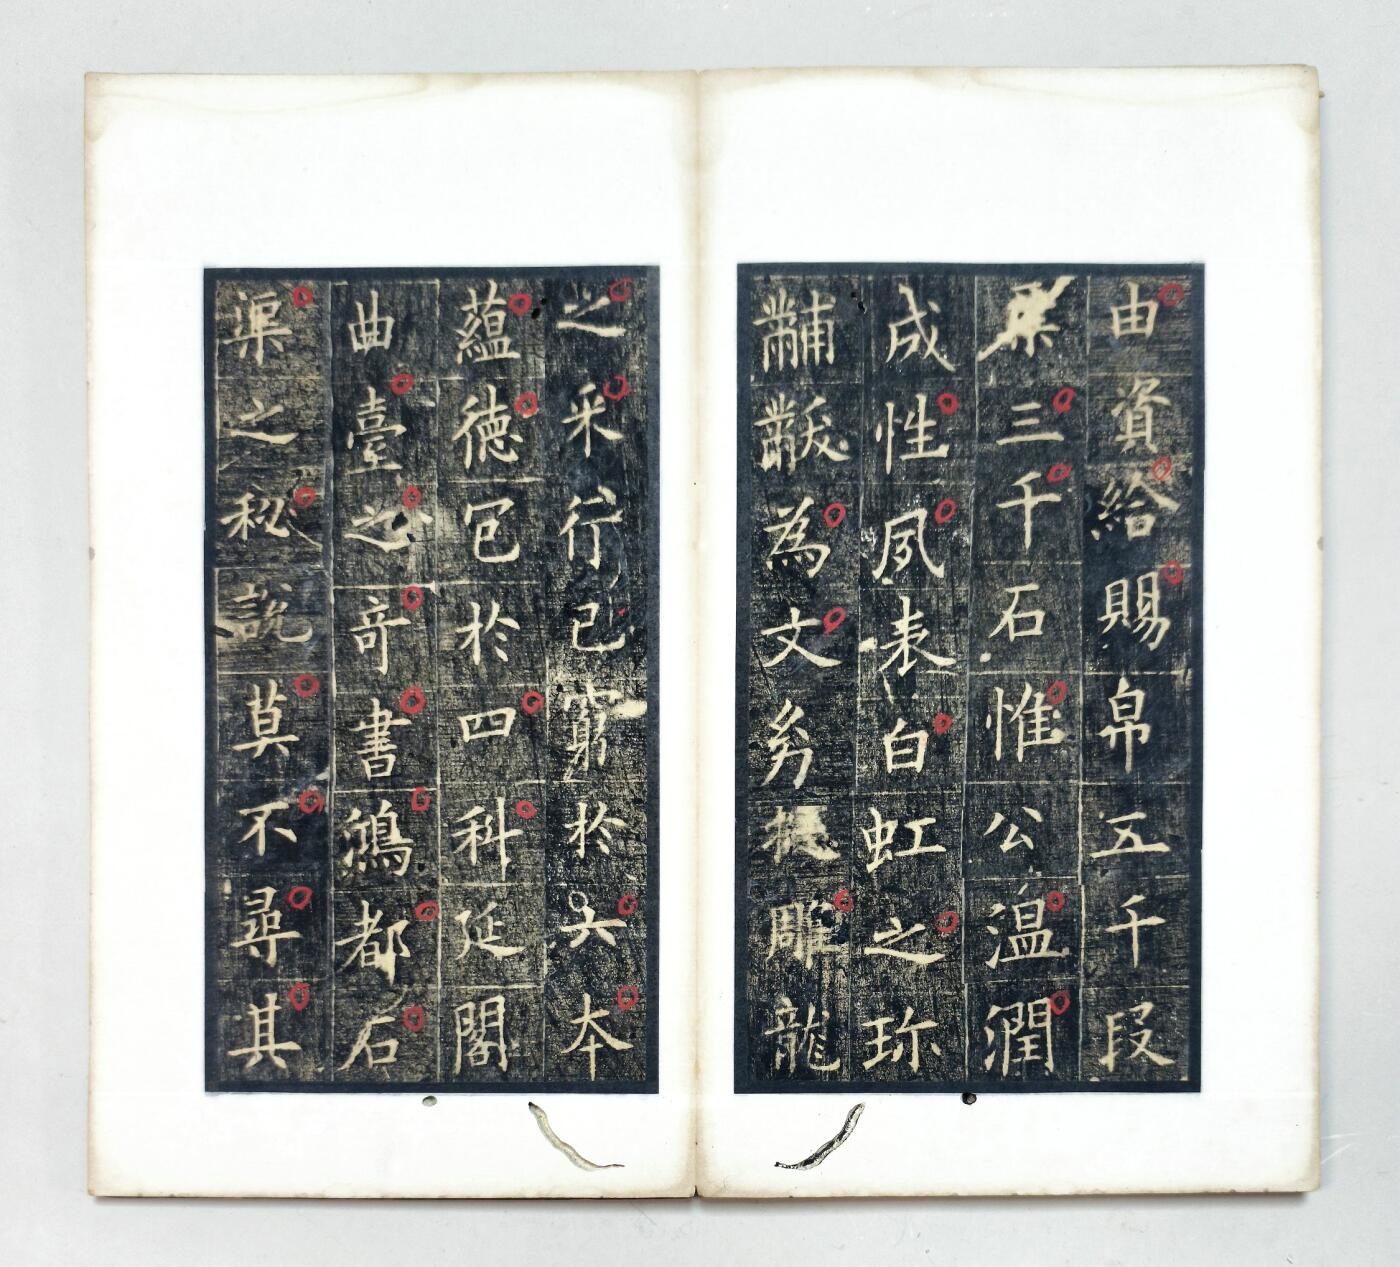 由資給賜帛五千段
粟三千石惟公溫潤
成性夙表白虹之珎
黼黻為文幼挺雕龍
之采行己窮於六本
蘊德包於四科延閣
曲臺之竒書鴻都石
渠之秘說莫不尋其